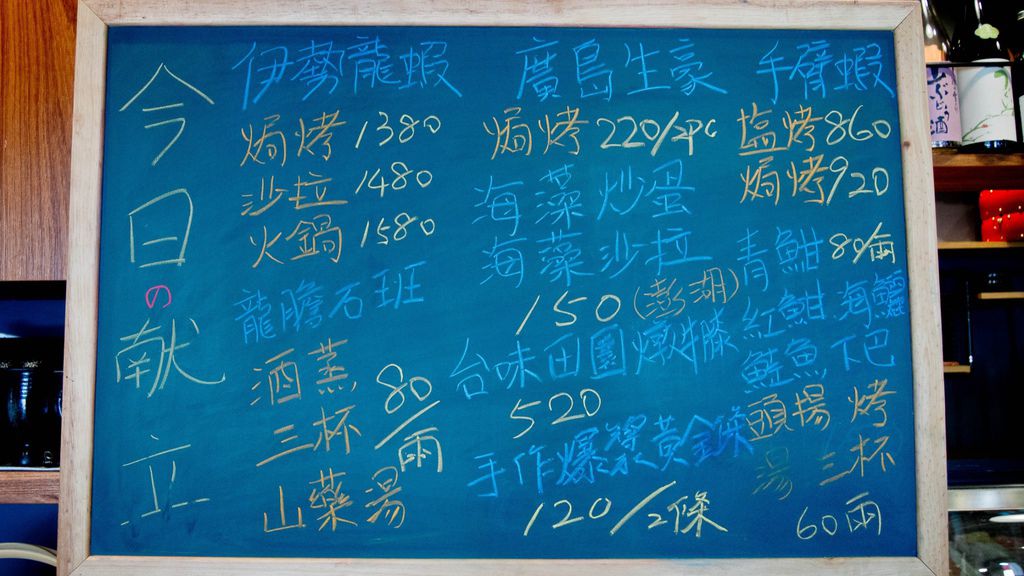 今日の献立
伊勢龍蝦
焗烤 1380
沙拉 1480
火鍋 1580
龍膽石班
酒蒸
三杯
山藥湯
80/兩
廣島生豪
焗烤 220/2PC
海藻炒蛋
海藻沙拉
150 (澎湖)
台味田園燉牛膝
520
手作爆漿黃金條
120/2條
手臂蝦
塩烤 860
焗烤 920
青魽 80/兩
紅魽 海鱺
鮭魚下巴
頭揚烤
湯 三杯
60兩
酒